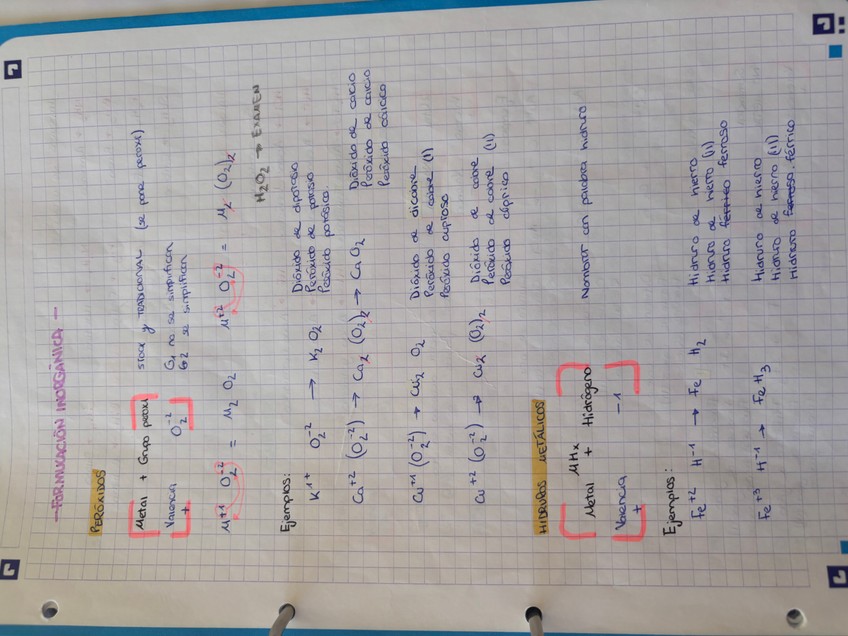 —FORMULACIÓN INORGÁNICA—
PERÓXIDOS
Metal + Grupo peroxi STOCK y TRADICIONAL (se pone peroxi)
Valencia O₂⁻² G1 no se simplifican
+ G2 se simplifican
M⁺¹ O₂⁻² = M₂ O₂ M⁺² O₂⁻² = M₂ (O₂)₂
H₂O₂ → EXAMEN
Ejemplos:
K¹⁺ O₂⁻² → K₂ O₂ Dióxido de dipotasio
Peróxido de potasio
Peróxido potásico
Ca⁺² (O₂⁻²) → Ca₂ (O₂)₂ → Ca O₂ Dióxido de calcio
Peróxido de calcio
Peróxido cálcico
Cu⁺¹ (O₂⁻²) → Cu₂ O₂ Dióxido de dicobre
Peróxido de cobre (I)
Peróxido cuproso
Cu⁺² (O₂⁻²) → Cu₂ (O₂)₂ Dióxido de cobre
Peróxido de cobre (II)
Peróxido cúprico
HIDRUROS METÁLICOS
MHx
Metal + Hidrógeno Nombrar con palabra hidruro
Valencia -1
+
Ejemplos:
Fe⁺² H⁻¹ → Fe H₂ Hidruro de hierro
Hidruro de hierro (II)
Hidruro férrico ferroso
Fe⁺³ H⁻¹ → Fe H₃ Hidruro de hierro
Hidruro de hierro (II)
Hidruro ferroso férrico